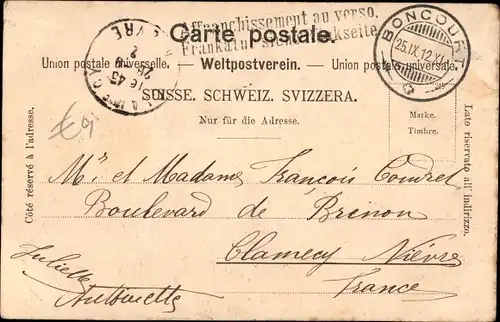 Carte postale.
Affranchissement au verso.
Frankatur siehe Rückseite
Union postale universelle. — Weltpostverein. — Union postale universale.
SUISSE. SCHWEIZ. SVIZZERA.
Nur für die Adresse.
BONCOURT
25.IX.12.XI
Marke.
Timbre.
Côté réservé à l'adresse.
Lato riservato all' indirizzo.
Mr et Madame François
Boulevard de Brinon
Clamecy Nièvre
France
Juliette
Antoinette